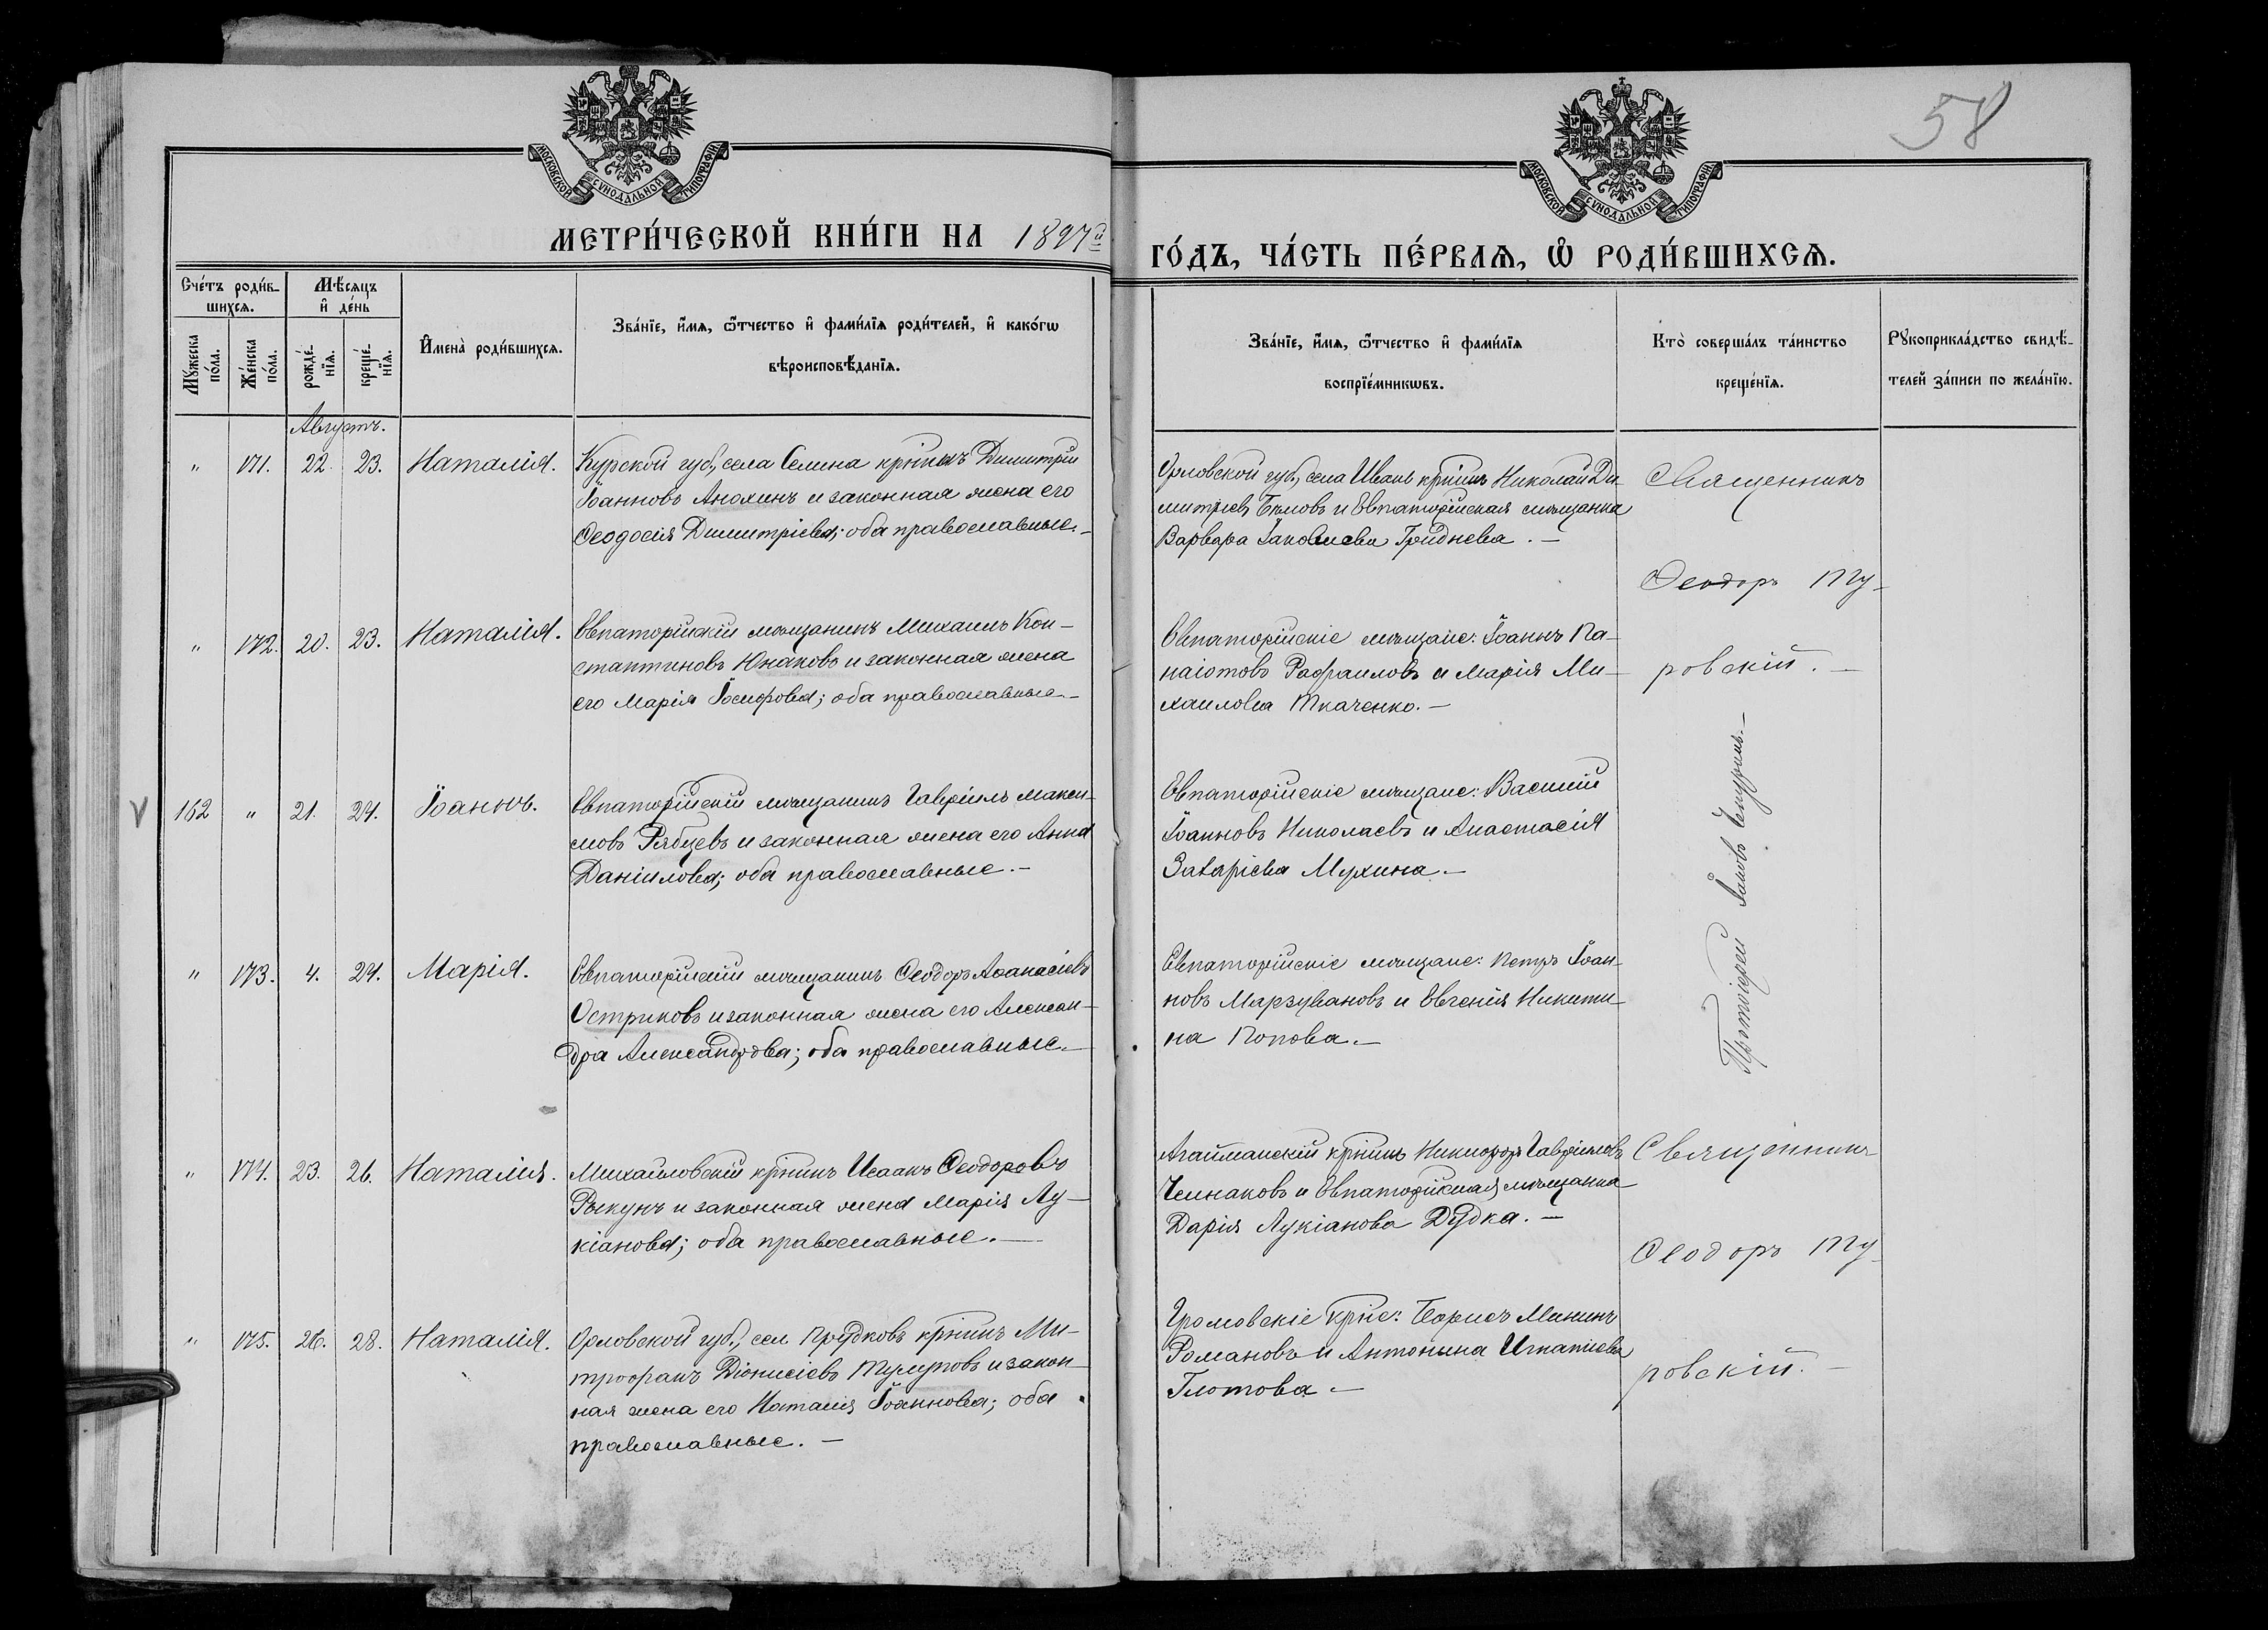 58
МОСКОВСКОЙ СУНОДАЛЬНОЙ ТИПОГРАФІИ
МОСКОВСКОЙ СУНОДАЛЬНОЙ ТИПОГРАФІИ
МЕТРИ́ЧЕСКОЙ КНИ́ГИ НА 1897й
ГО́ДЪ, ЧА́СТЬ ПЕ́РВАѦ, Ѡ҆ РОДИ́ВШИХСѦ.
Сче́тъ роди́в-
шихсѧ.
Мꙋ́жеска по́ла.
Же́нска по́ла.
Мѣ́сѧцъ
и҆ де́нь
рожде́-
нїѧ.
креще́-
нїѧ.
И҆мена̀ роди́вшихсѧ.
Зва́нїе, и҆́мѧ, ѻ҆́тчество и҆ фами́лїѧ роди́телей, и҆ како́гѡ
вѣроисповѣ́данїѧ.
Зва́нїе, и҆́мѧ, ѻ҆́тчество и҆ фами́лїѧ
воспрїе́мникѡвъ.
Кто̀ соверша́лъ та́инство
креще́нїѧ.
Рꙋкоприкла́дство свидѣ́-
телей за́писи по жела́нїю.
Августъ.
" 171. 22. 23. Наталія.
Курской губ., села Селина крнинъ Димитрій
Іоанновъ Анохинъ и законная жена его
Ѳеодосія Димитріева; оба православные.-
Орловской губ., села Ивань крнинъ Николай Ди-
митріев Бѣловъ и Евпаторійская мѣщанка
Варвара Іаковлева Гриднева.-
Священникъ
Ѳеодоръ Ту-
ровскій.-
" 172. 20. 23. Наталія.
Евпаторійскій мѣщанинъ Михаилъ Кон-
стантиновъ Юнаковъ и законная жена
его Марія Іосифова; оба православные-
Евпаторійскіе мѣщане: Іоаннъ Па-
наіотовъ Рафаиловъ и Марія Ми-
хаилова Ткаченко.-
V 162 " 21. 24. Іоаннъ.
Евпаторійскій мѣщанинъ Гавріилъ Макси-
мовъ Рябцевъ и законная жена его Анна
Даніилова; оба православные.-
Евпаторійскіе мѣщане: Василій
Іоанновъ Николаевъ и Анастасія
Захаріева Мухина.-
Протоіерей Іаковъ Чепуринъ.-
" 173. 4. 24. Марія.
Евпаторійскій мѣщанинъ Ѳеодоръ Аѳанасіевъ
Остриковъ и законная жена его Алексан-
дра Александрова; оба православные.-
Евпаторійскіе мѣщане: Петръ Іоан-
новъ Марзувановъ и Евгенія Никити-
на Попова.-
" 174. 23. 26. Наталія.
Михайловскій крнинъ Исаакъ Ѳеодоровъ
Рыкунъ и законная жена Марія Лу-
кіанова; оба православные.-
Агайманскій крнинъ Никифоръ Гавріиловъ
Чминаковъ и Евпаторійская мѣщанка
Дарія Лукіанова Дудка.-
Священникъ
Ѳеодоръ Ту-
ровскій.-
" 175. 26. 28. Наталія.
Орловской губ., сел Прудковъ крнинъ Ми-
трофанъ Діонисіевъ и закон-
ная жена его Наталія Іоаннова; оба
православные.-
Громовскіе крне: Борисъ Мининъ
Романовъ и Антонина Игнатіева
Глотова-